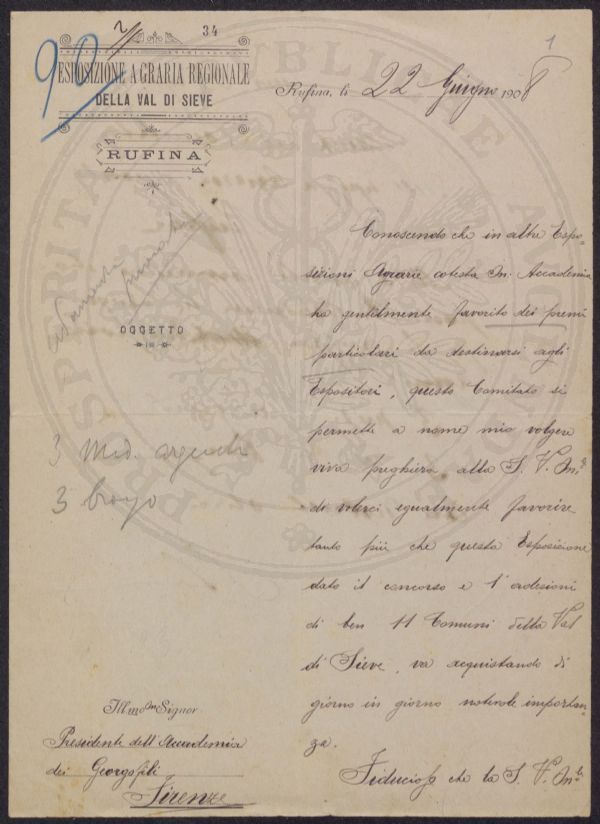 34
1
90
ESPOSIZIONE AGRARIA REGIONALE
DELLA VAL DI SIEVE
RUFINA
Rufina, li 22 Giugno 1908
OGGETTO
3 Med. argento
3 bronzo
Conoscendo che in altre Espo-
sizioni Agrarie cotesta In. Accademia
ha gentilmente favorito dei premi
particolari da destinarsi agli
Espositori, questo Comitato si
permette a nome mio volgere
viva preghiera alla S. V. Ill.
di volerci egualmente favorire
tanto più che questa Esposizione
dato il concorso e l'adesioni
di ben 11 Comuni della Val
di Sieve, va acquistando di
giorno in giorno notevole importan-
za.
Fiducioso che la S. V. Ill.
Illmo Signor
Presidente dell'Accademia
dei Georgofili
Firenze